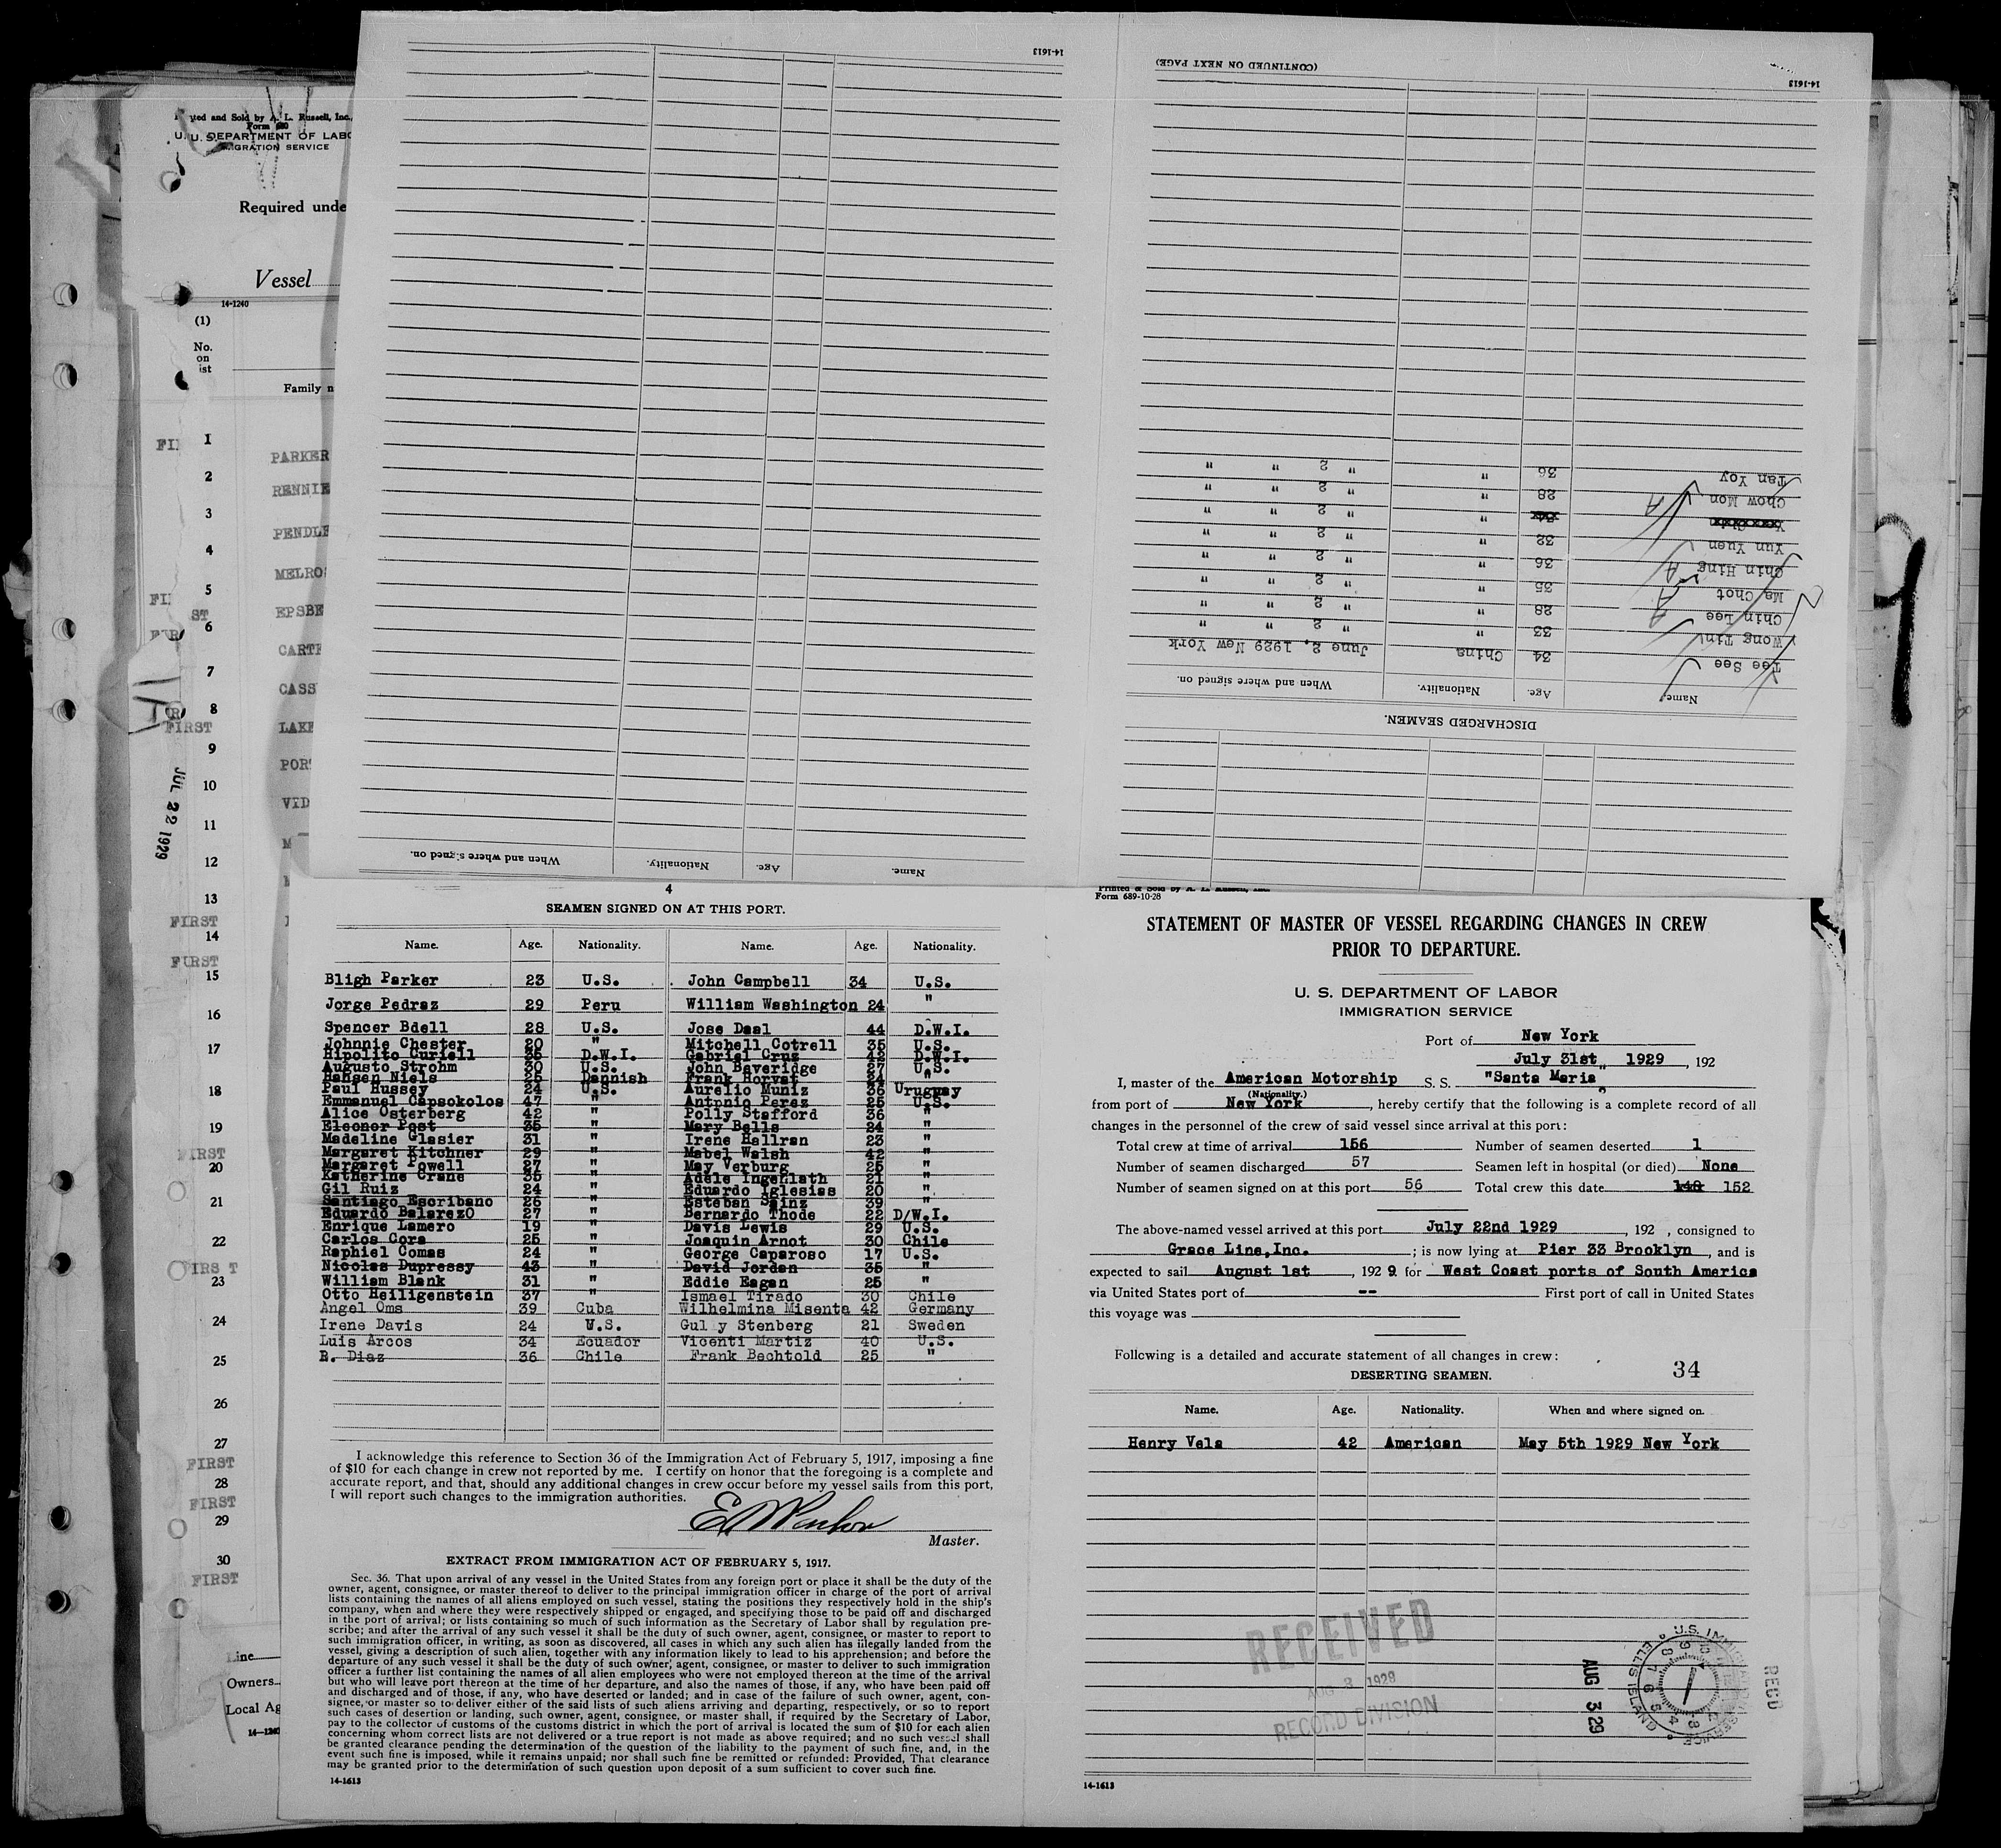 Printed and Sold by A. L. Russell, Inc.,
U. S. DEPARTMENT OF LABO
IMMIGRATION SERVICE
Required unde
Vessel
14-1240
(1)
No.
on
list
Family n
1 PARKER
2 RENNIE
3 PENDLE
4 MELRO
5 EPSBE
6 CARTE
7 CASS
8 LAKE
FIRST
9 POR
10 VID
11 M
12
13
FIRST
14
FIRST
15
16
17
18
19
FIRST
20
21
22
FIRST
23
24
25
26
27
FIRST
28
FIRST
29
30
FIRST
JUL 22 1929
Line
Owners
Local Ag
14-1240
14-1613
Name. Age. Nationality. When and where signed on.
14-1613
(CONTINUED ON NEXT PAGE)
DISCHARGED SEAMEN.
Name. Age. Nationality. When and where signed on.
Lee See 34 China June 2, 1929 New York
Wong Tin 33 " " 2 " "
Chin Lee 28 " " 2 " "
Ma Chot 35 " " 2 " "
Chin Hing 36 " " 2 " "
Yun Yuen 32 " " 2 " "
" " 2 " "
Chow Mon 28 " " 2 " "
Tan Yoy 36 " " 2 " "
4
SEAMEN SIGNED ON AT THIS PORT.
Name. Age. Nationality. Name. Age. Nationality.
Bligh Parker 23 U.S. John Campbell 34 U.S.
Jorge Pedraz 29 Peru William Washington 24 "
Spencer Bdell 28 U.S. Jose Daal 44 D.W.I.
Johnnie Chester 20 " Mitchell Cotrell 35 U.S.
Hipolito Curiell 35 D.W.I. Gabriel Cruz 42 D.W.I.
Augusto Strohm 30 U.S. John Baveridge 27 U.S.
Hansen Niels 25 Dannish Frank Horvat 24 "
Paul Hussey 24 U.S. Aurelio Muniz 36 Uruguay
Emmanuel Capsokolos 47 " Antonio Perez 25 U.S.
Alice Osterberg 42 " Polly Stafford 36 "
Eleonor Post 35 " Mary Bells 24 "
Madeline Glasier 31 " Irene Hallran 23 "
Margaret Kitchner 29 " Mabel Walsh 42 "
Margaret Powell 27 " May Verburg 25 "
Katherine Crane 35 " Adele Ingenlath 21 "
Gil Ruiz 24 " Eduardo Iglesias 20 "
Santiago Escribano 26 " Esteban Sainz 39 "
Eduardo Balarezo 27 " Bernardo Thode 22 D/W.I.
Enrique Lamero 19 " Davis Lewis 29 U.S.
Carlos Cora 25 " Joaquin Arnot 30 Chile
Raphiel Comas 24 " George Caparoso 17 U.S.
Nicolas Dupressy 43 " David Jordan 35 "
William Blank 31 " Eddie Eagan 25 "
Otto Heiligenstein 37 " Ismael Tirado 30 Chile
Angel Oms 39 Cuba Wilhelmina Misenta 42 Germany
Irene Davis 24 U.S. Gul y Stenberg 21 Sweden
Luis Arcos 34 Ecuador Vicenti Martiz 40 U.S.
R. Diaz 36 Chile Frank Bechtold 25 "
I acknowledge this reference to Section 36 of the Immigration Act of February 5, 1917, imposing a fine
of $10 for each change in crew not reported by me. I certify on honor that the foregoing is a complete and
accurate report, and that, should any additional changes in crew occur before my vessel sails from this port,
I will report such changes to the immigration authorities.
Master.
EXTRACT FROM IMMIGRATION ACT OF FEBRUARY 5, 1917.
Sec. 36. That upon arrival of any vessel in the United States from any foreign port or place it shall be the duty of the
owner, agent, consignee, or master thereof to deliver to the principal immigration officer in charge of the port of arrival
lists containing the names of all aliens employed on such vessel, stating the positions they respectively hold in the ship's
company, when and where they were respectively shipped or engaged, and specifying those to be paid off and discharged
in the port of arrival; or lists containing so much of such information as the Secretary of Labor shall by regulation pre-
scribe; and after the arrival of any such vessel it shall be the duty of such owner, agent, consignee, or master to report to
such immigration officer, in writing, as soon as discovered, all cases in which any such alien has illegally landed from the
vessel, giving a description of such alien, together with any information likely to lead to his apprehension; and before the
departure of any such vessel it shall be the duty of such owner, agent, consignee, or master to deliver to such immigration
officer a further list containing the names of all alien employees who were not employed thereon at the time of the arrival
but who will leave port thereon at the time of her departure, and also the names of those, if any, who have been paid off
and discharged and of those, if any, who have deserted or landed; and in case of the failure of such owner, agent, con-
signee, or master so to deliver either of the said lists of such aliens arriving and departing, respectively, or so to report
such cases of desertion or landing, such owner, agent, consignee, or master shall, if required by the Secretary of Labor,
pay to the collector of customs of the customs district in which the port of arrival is located the sum of $10 for each alien
concerning whom correct lists are not delivered or a true report is not made as above required; and no such vessel shall
be granted clearance pending the determination of the question of the liability to the payment of such fine, and, in the
event such fine is imposed, while it remains unpaid; nor shall such fine be remitted or refunded: Provided, That clearance
may be granted prior to the determination of such question upon deposit of a sum sufficient to cover such fine.
14-1613
Printed & Sold by A. L. Russell, Inc.
Form 689-10-28
STATEMENT OF MASTER OF VESSEL REGARDING CHANGES IN CREW
PRIOR TO DEPARTURE.
U. S. DEPARTMENT OF LABOR
IMMIGRATION SERVICE
Port of New York
July 31st, 1929, 192
I, master of the American Motorship S. S. "Santa Maria"
(Nationality.)
from port of New York, hereby certify that the following is a complete record of all
changes in the personnel of the crew of said vessel since arrival at this port:
Total crew at time of arrival 156 Number of seamen deserted 1
Number of seamen discharged 57 Seamen left in hospital (or died) None
Number of seamen signed on at this port 56 Total crew this date 148 152
The above-named vessel arrived at this port July 22nd 1929, 192 , consigned to
Grace Line, Inc. ; is now lying at Pier 33 Brooklyn, and is
expected to sail August 1st, 1929. for West Coast ports of South America
via United States port of -- First port of call in United States
this voyage was
Following is a detailed and accurate statement of all changes in crew:
34
DESERTING SEAMEN.
Name. Age. Nationality. When and where signed on.
Henry Vela 42 American May 5th 1929 New York
RECEIVED
AUG 3 1929
RECORD DIVISION
AUG 3 29
U.S. IMMIGRATION SERVICE
ELLIS ISLAND
RECD
14-1613